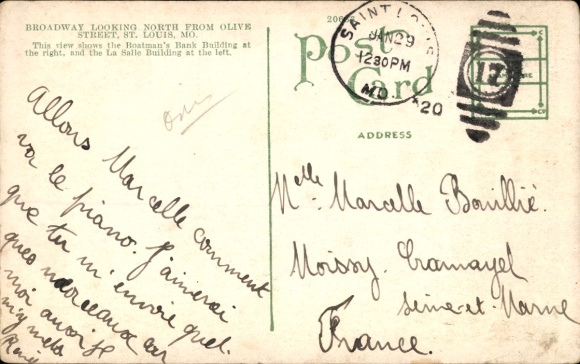 BROADWAY LOOKING NORTH FROM OLIVE
STREET, ST. LOUIS, MO.
This view shows the Boatman's Bank Building at
the right, and the La Salle Building at the left.
Post
Card
SAINT LOUIS
JAN 29
12 30 PM
MO.
20
13
ADDRESS
Allons Marcelle comment
va le piano. J'aimerai
que tu m'envoie quel
ques morceaux car
moi aussi je
m'y mets
René
Mlle Marcelle Bouillié.
Moissy-Cramayel
Seine-et-Marne
France.